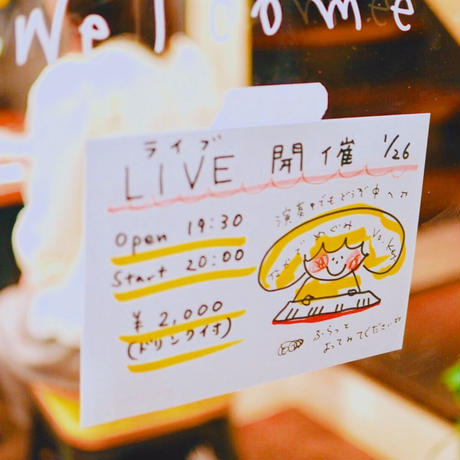 Welcome
ライブ
LIVE 開催 1/26
Open 19:30
Start 20:00
¥2,000
(ドリンク付)
演奏中でもどうぞ中へ♪
めぐみ
Vo. Key
ふらっと
よってみてください